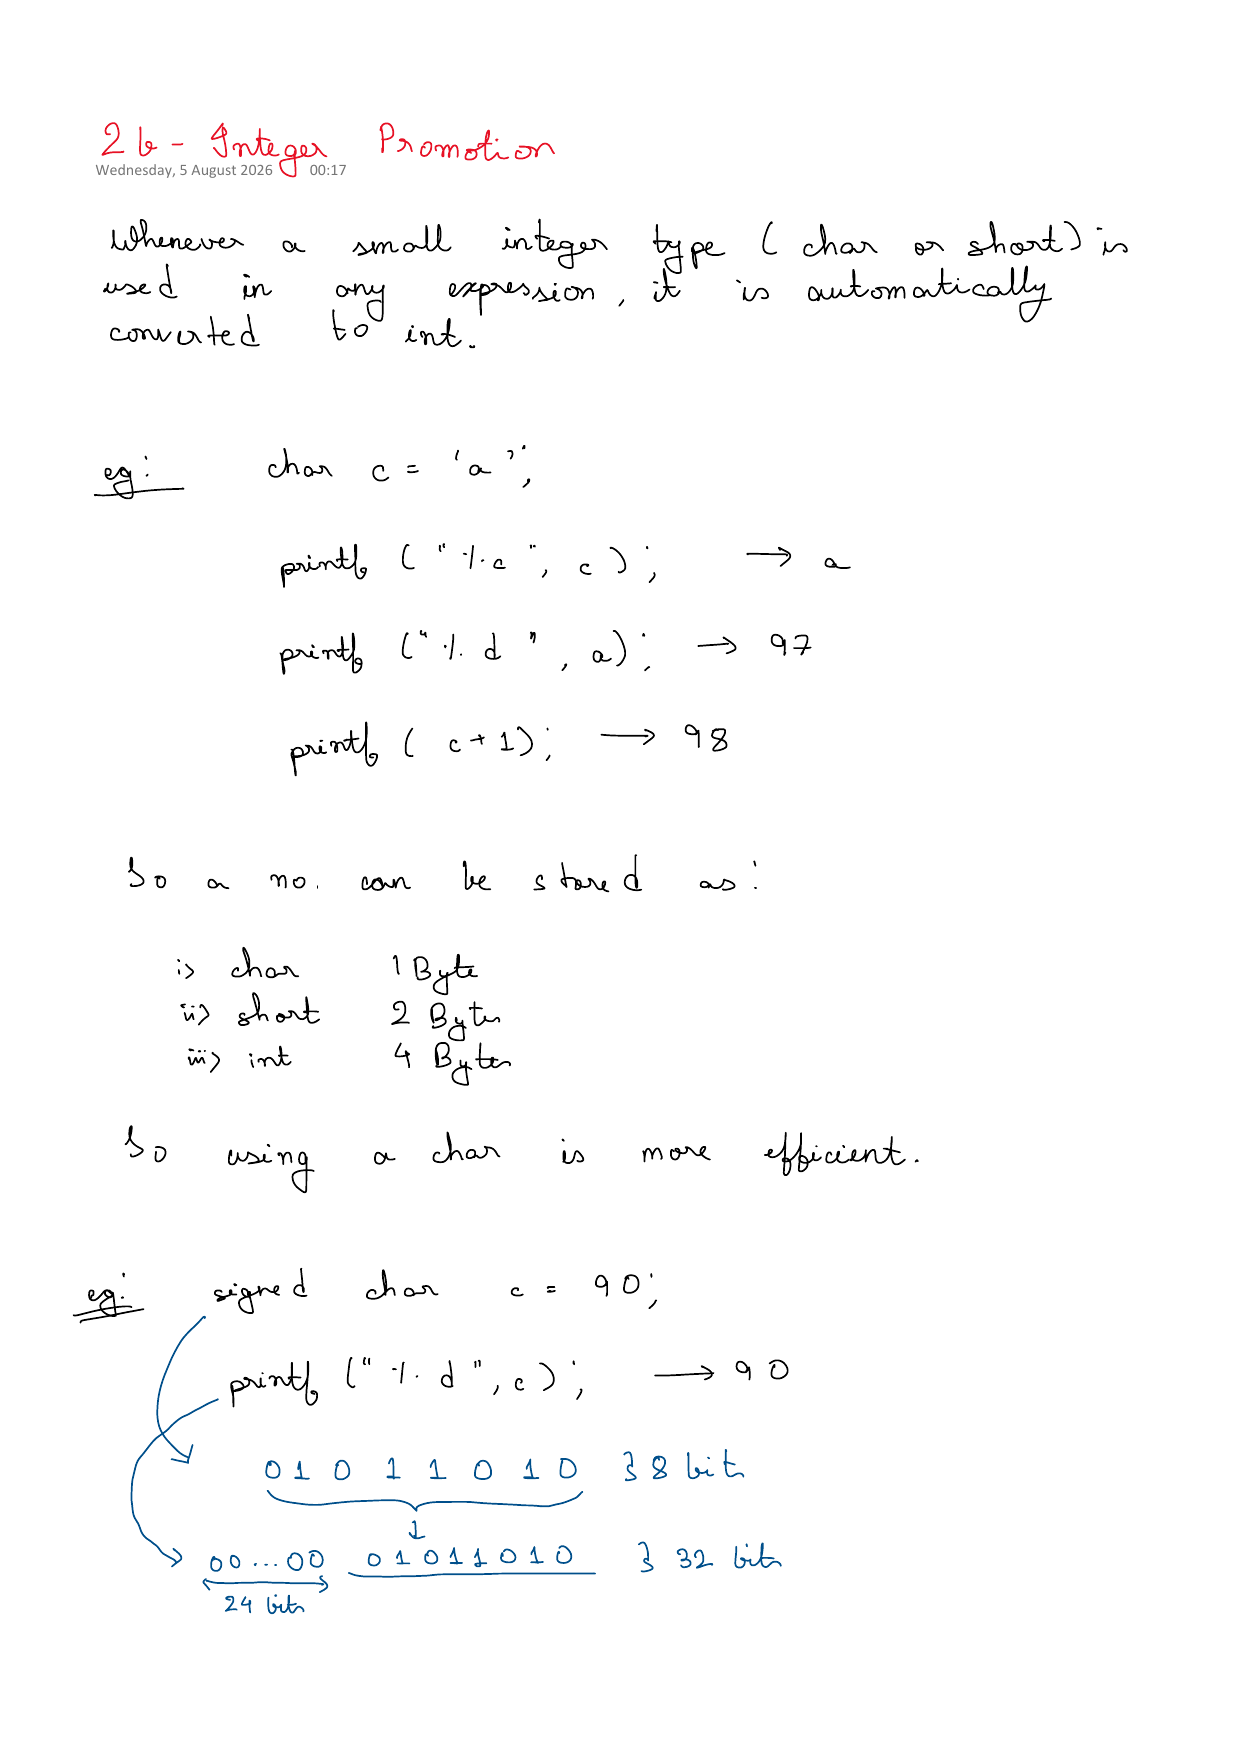 2b - Integer Promotion
Wednesday, 5 August 2026 00:17
Whenever a small integer type ( char or short ) is
used in any expression, it is automatically
converted to int.
eg: char c = 'a';
printf ( "%c", c ) ; → a
printf ( "%d", a ) ; → 97
printf ( c + 1 ) ; → 98
So a no. can be stored as:
i> char 1 Byte
ii> short 2 Bytes
iii> int 4 Bytes
So using a char is more efficient.
eg: signed char c = 90;
printf ( "%d", c ) ; → 90
0 1 0 1 1 0 1 0 } 8 bits
00...00 0 1 0 1 1 0 1 0 } 32 bits
24 bits